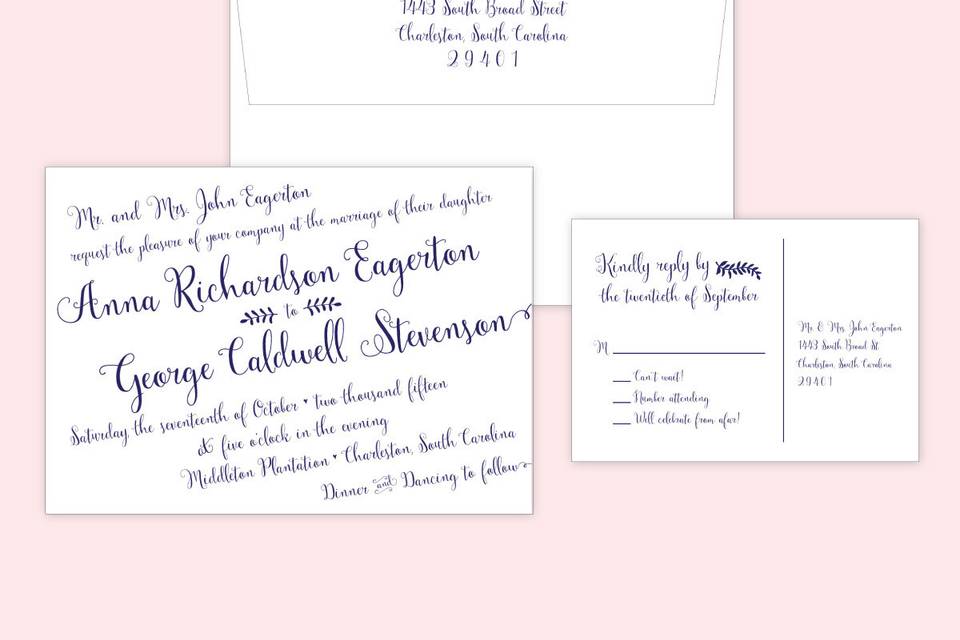 1443 South Broad Street
Charleston, South Carolina
29401
Mr. and Mrs. John Eagerton
request the pleasure of your company at the marriage of their daughter
Anna Richardson Eagerton
to
George Caldwell Stevenson
Saturday, the seventeenth of October ♥ two thousand fifteen
at five o'clock in the evening
Middleton Plantation ♥ Charleston, South Carolina
Dinner and Dancing to follow
Kindly reply by
the twentieth of September
M
Can't wait!
Number attending
Will celebrate from afar!
Mr. & Mrs. John Eagerton
1443 South Broad St.
Charleston, South Carolina
29401